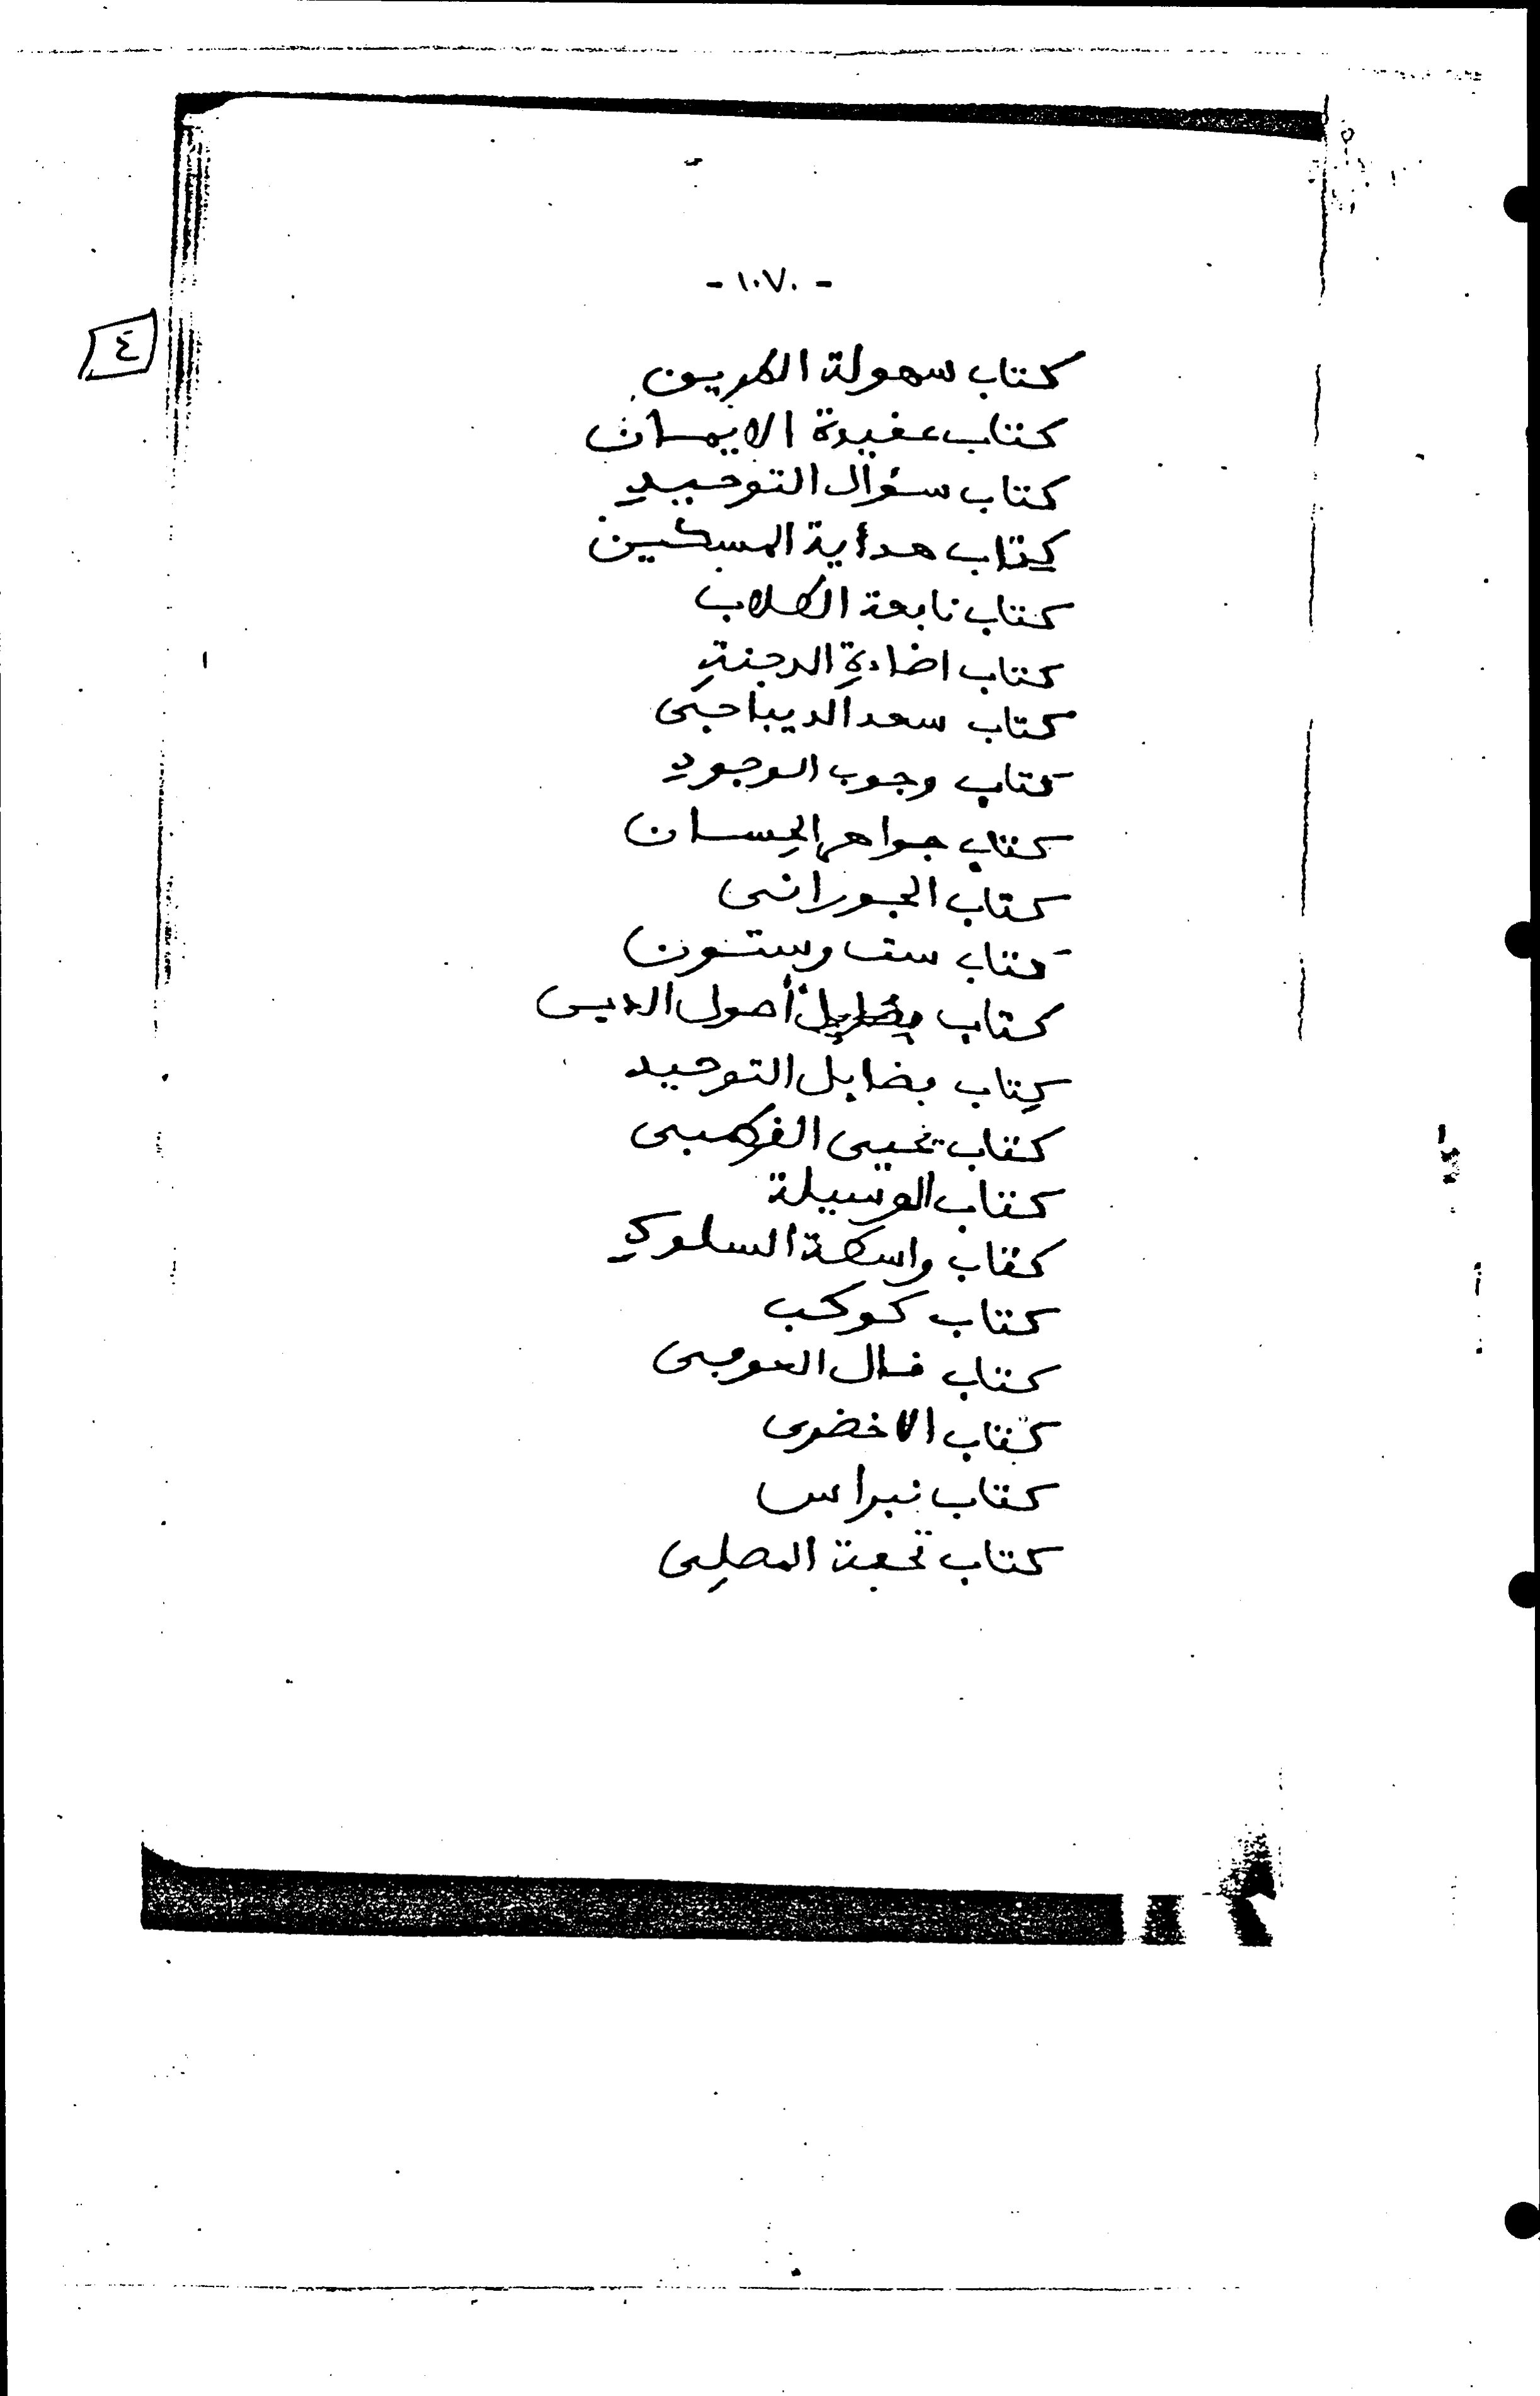 - ١٠٧٠ -
٤
كتاب سهولة الطريق
كتاب عفيدة الايمان
كتاب سؤال التوحيد
كتاب هداية المسكين
كتاب نابعة الطلاب
كتاب اضاءة الدجنة
كتاب سعد الديباجى
كتاب وجوب الوجود
كتاب جواهر الحسان
كتاب الجورانى
كتاب ست وستون
كتاب أصول الدين
كتاب بضايل التوحيد
كتاب يحيى الفرطبى
كتاب الوسيلة
كتاب واسطة السلوك
كتاب كوكب
كتاب فال العوبى
كتاب الاخضرى
كتاب نبراس
كتاب تحبة المصلى